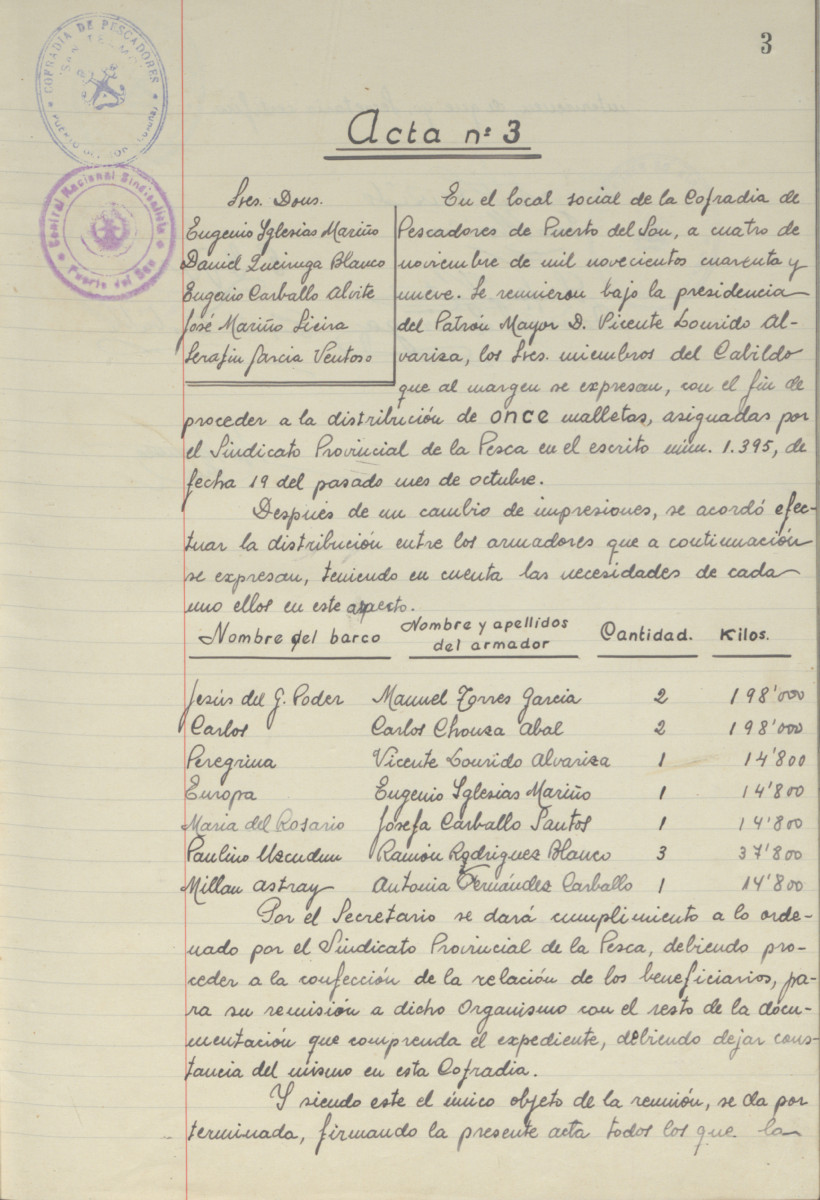 3
COFRADIA DE PESCADORES
"SAN TELMO"
PUERTO DEL SON
Central Nacional Sindicalista
Puerto del Son
Acta nº 3
Sres. Dous.
Eugenio Yglesias Mariño
Daniel Queiruga Blanco
Eugenio Carballo Alvite
José Mariño Sieira
Serafin Garcia Ventoso
En el local social de la Cofradia de
Pescadores de Puerto del Son, a cuatro de
noviembre de mil novecientos cuarenta y
nueve. Se reunieron bajo la presidencia
del Patrón Mayor D. Vicente Lourido Al-
variza, los Sres. miembros del Cabildo
que al margen se expresan, con el fin de
proceder a la distribución de once malletas, asignadas por
el Sindicato Provincial de la Pesca en el escrito núm. 1.395, de
fecha 19 del pasado mes de octubre.
Después de un cambio de impresiones, se acordó efec-
tuar la distribución entre los armadores que a continuación
se expresan, teniendo en cuenta las necesidades de cada
uno ellos en este aspecto.
Nombre del barco Nombre y apellidos del armador Cantidad. Kilos.
Jesús del G. Poder Manuel Torres Garcia 2 198'000
Carlos Carlos Chouza Abal 2 198'000
Peregrina Vicente Lourido Alvariza 1 14'800
Europa Eugenio Yglesias Mariño 1 14'800
Maria del Rosario Josefa Carballo Santos 1 14'800
Paulino Uzcudun Ramón Rodriguez Blanco 3 37'800
Millan astray Antonia Fernández Carballo 1 14'800
Por el Secretario se dará cumplimiento a lo orde-
nado por el Sindicato Provincial de la Pesca, debiendo pro-
ceder a la confección de la relación de los beneficiarios, pa-
ra su remisión a dicho Organismo con el resto de la docu-
mentación que comprenda el expediente, debiendo dejar cons-
tancia del mismo en esta Cofradia.
Y siendo este el único objeto de la reunión, se da por
terminada, firmando la presente acta todos los que la